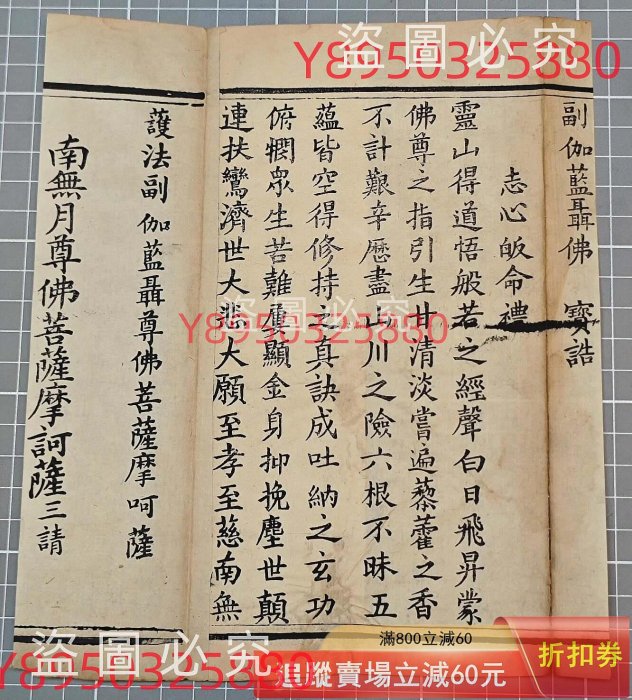 盜圖必究
Y8950325880
副伽藍聶佛 寶誥
志心皈命禮
靈山得道悟般若之經聲白日飛昇蒙
佛尊之指引生甘清淡嘗遍藜藿之香
不計艱辛歷盡山川之險六根不昧五
蘊皆空得修持之真訣成吐納之玄功
俯憫眾生苦難重顯金身抑挽塵世顛
連扶鸞濟世大悲大願至孝至慈南無
護法副伽藍聶尊佛菩薩摩呵薩
南無月尊佛菩薩摩訶薩三請
盜圖必究
Y8950325880
盜圖必究
Y8950325880
滿800立減60
追蹤賣場立減60元
折扣券